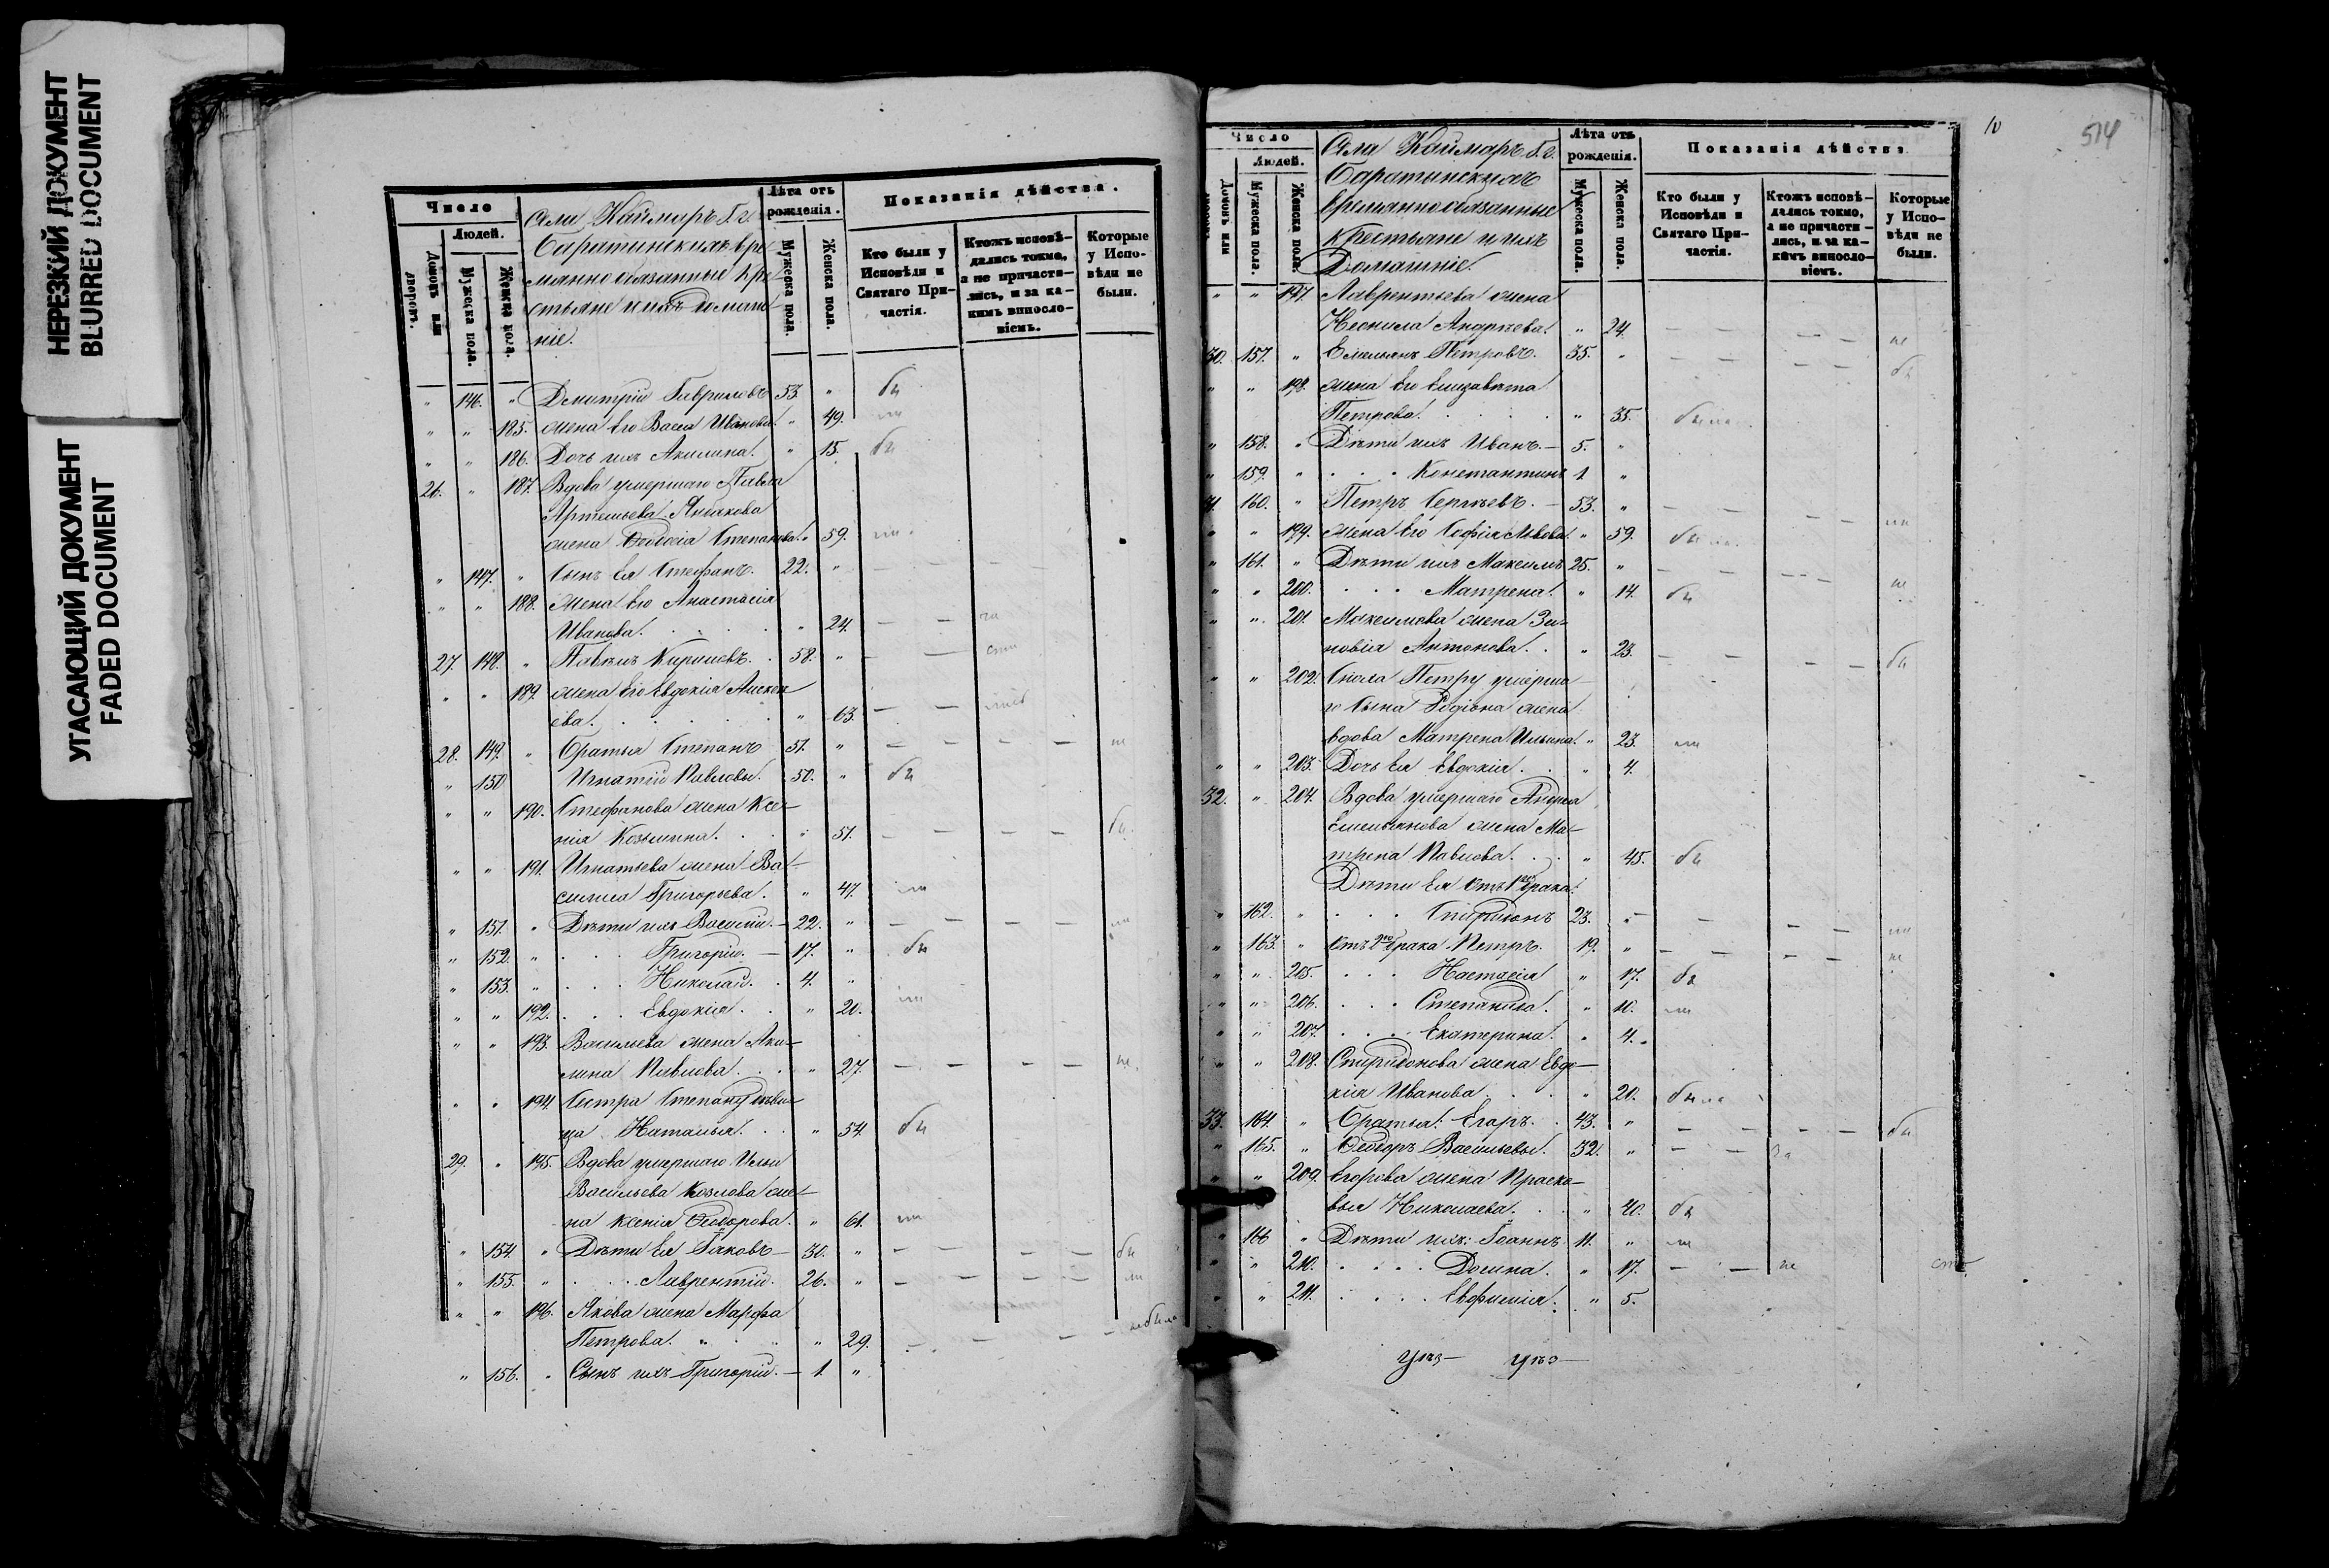 НЕРЕЗКИЙ ДОКУМЕНТ
BLURRED DOCUMENT
УГАСАЮЩИЙ ДОКУМЕНТ
FADED DOCUMENT
Число
Людей.
Домовъ или дворовъ.
Мужеска пола.
Женска пола.
Села Каймаръ Г.г.
Баратынскихъ вре-
мянно обязанные кре-
стьяне и ихъ домаш-
ніе.
Лѣта отъ рожденія.
Мужеска пола.
Женска пола.
Показанія дѣйства.
Кто были у Исповѣди и Святаго При-частія.
Ктожъ исповѣ-дались токмо, а не причасти-лись, и за ка-кимъ винословіемъ.
Которые у Испо-вѣди не были.
" 146. " Димитрій Гавриловъ 53. " бы
" " 185. жена его Васса Иванова. " 49.
" " 186. Дочь ихъ Акилина. " 15. бы
26. " 187. Вдова умершаго Павла
Артемьева
жена Ѳеодосія Степанова. " 59.
" 147. " Сынъ ея Стефанъ. 22. "
" " 188. Жена его Анастасія
Иванова. " 24.
27. 148. " Павелъ Кириловъ. 58. "
" " 189. жена его Евдокія Алексѣ-
ева. " 63.
28. 149. " Братья Степанъ 51. " не
" 150 Игнатій Павловы. 50. " бы
" " 190. Стефанова жена Ксе-
нія Козьмина. " 51. бы
" " 191. Игнатьева жена Ва-
силиса Григорьева. " 47.
" 151. " Дѣти ихъ Василій. 22. "
" 152. " Григорій. 17. " бы
" 153. " Николай. 4. "
" " 192. Евдокія. " 20.
" " 193. Васильева жена Аки-
лина Павлова. " 27. не
" " 194. Сестра Степану дѣви-
ца Наталья. " 54. бы
29. " 195. Вдова умершаго Ильи
Васильева Козлова же-
на Ксенія Ѳеодорова. " 61.
" 154. " Дѣти ея Іаковъ 30. " бы
" 155. " Лаврентій. 26. " ли
" " 196. Якова жена Марѳа
Петрова. " 29. не была
" 156. " Сынъ ихъ Григорій. 1. "
10
514
Число
Людей.
Домовъ или
Мужеска пола.
Женска пола.
Села Каймаръ Г.г.
Баратынскихъ
временно обязанные
крестьяне и ихъ
домашніе.
Лѣта отъ рожденія.
Мужеска пола.
Женска пола.
Показанія дѣйства
Кто были у Исповѣди и Святаго При-частія.
Ктожъ исповѣ-дались токмо, а не причасти-лись, и за ка-кимъ винословіемъ.
Которые у Испо-вѣди не были.
" " 197. Лаврентьева жена
Неонила Андреева. " 24. не
30. 157. " Емельянъ Петровъ. 35. " бы
" " 198. жена его Елизавета
Петрова. " 35. были
" 158. " Дѣти ихъ Иванъ. 5. "
" 159. " Константинъ 1 "
160. " Петръ Сергѣевъ. 53. "
" " 199. жена его Софія Львова. " 59. была
" 161. " Дѣти ихъ Максимъ 25. " не
" " 200. Матрена. " 14. бы
" " 201. Максимова жена Зи-
новія Антонова. " 23. бы
" " 202. Сноха Петру умерша-
го сына Родіона жена
вдова Матрена Ильина. " 23.
" " 203. Дочь ея Евдокія. " 4.
32. " 204. Вдова умершаго Андрея
Емельянова жена Ма-
трена Павлова. " 45. бы
Дѣти ея отъ 1го брака:
" 162. " Спиридонъ 23. "
" 163. " отъ 2го брака Петръ. 19. " не
" " 205. Настасія " 17. бы
" " 206. Степанида. " 10.
" " 207. Екатерина. " 4.
" " 208. Спиридонова жена Евдо-
кія Иванова " 20. была
33. 164. " Братья: Егоръ. 43. " бы
" 165. " Ѳеодоръ Васильевы. 32. " За
" " 209. Егорова жена Праско-
вья Николаева. " 40. бы
" 166 " Дѣти ихъ: Іоаннъ 11. "
" " 210. Домна. " 17. не
" " 211. Евфимія. " 5.